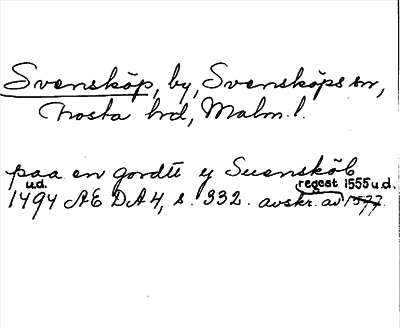 Svensköp, by, Svensköps sn,
Frosta hrd, Malm. l.
paa en gordtt y Suensköb
u.d. regest 1555 u.d.
1494 AE DA 4, s. 332. avskr. av 1577.